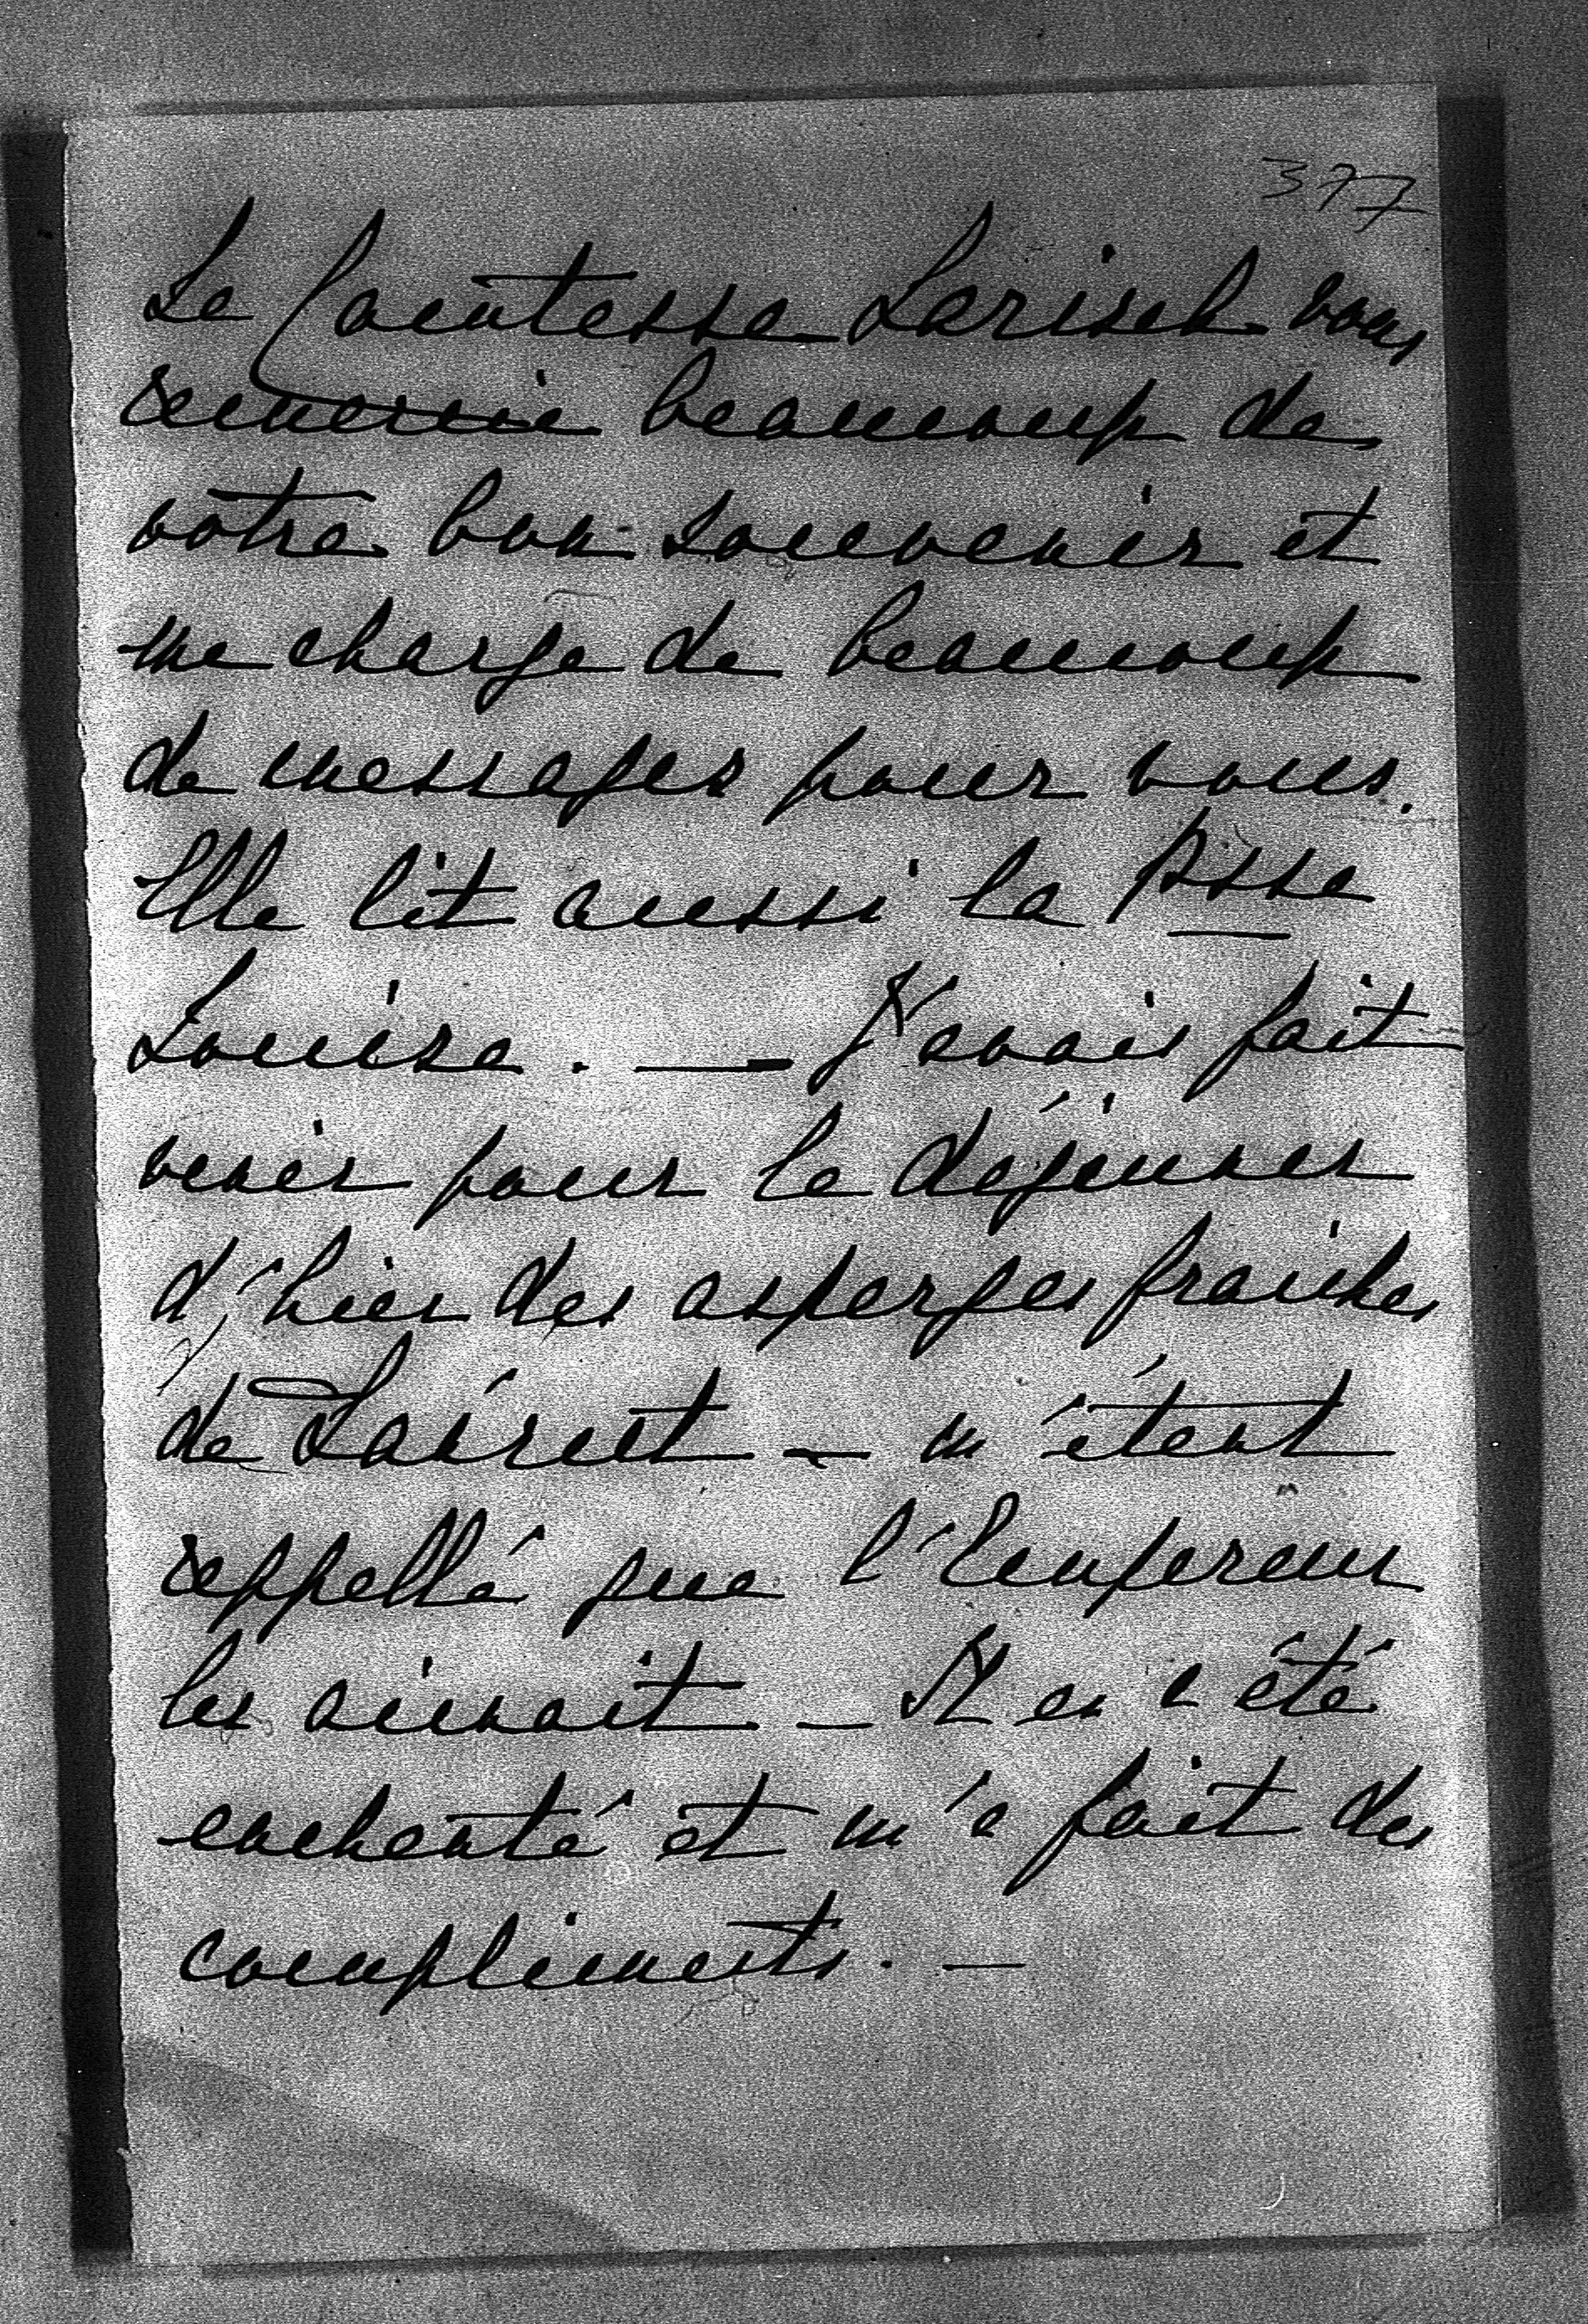 377
La Comtesse Larisch vous
remercie beaucoup de
votre bon souvenir et
me charge de beaucoup
de messages pour vous.
Elle lit aussi la Psse
Louise. — J'avais fait
venir pour le déjeuner
d'hier des asperges fraiches
de — m'étant
rappellé que l'Empereur
les aimait — Il en a été
enchanté et m'a fait des
compliments. —